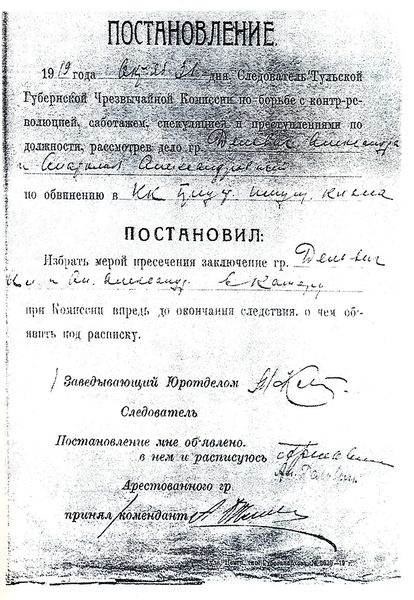 ПОСТАНОВЛЕНИЕ.
1919 года дня. Следователь Тульской
Губернской Чрезвычайной Комиссии по борьбе с контр-ре-
волюцией, саботажем, спекуляцией и преступлениями по
должности, рассмотрев дело гр. Дельвиг Александра
и Александровны
по обвинению в
ПОСТАНОВИЛ:
Избрать мерой пресечения заключение гр. Дельвиг
Александр. в камеру
при Комиссии впредь до окончания следствия, о чем об‘-
явить под расписку.
Заведывающий Юротделом
Следователь
Постановление мне об‘явлено.
в нем и расписуюсь
Ан. Дельвиг
Арестованного гр
принял комендант